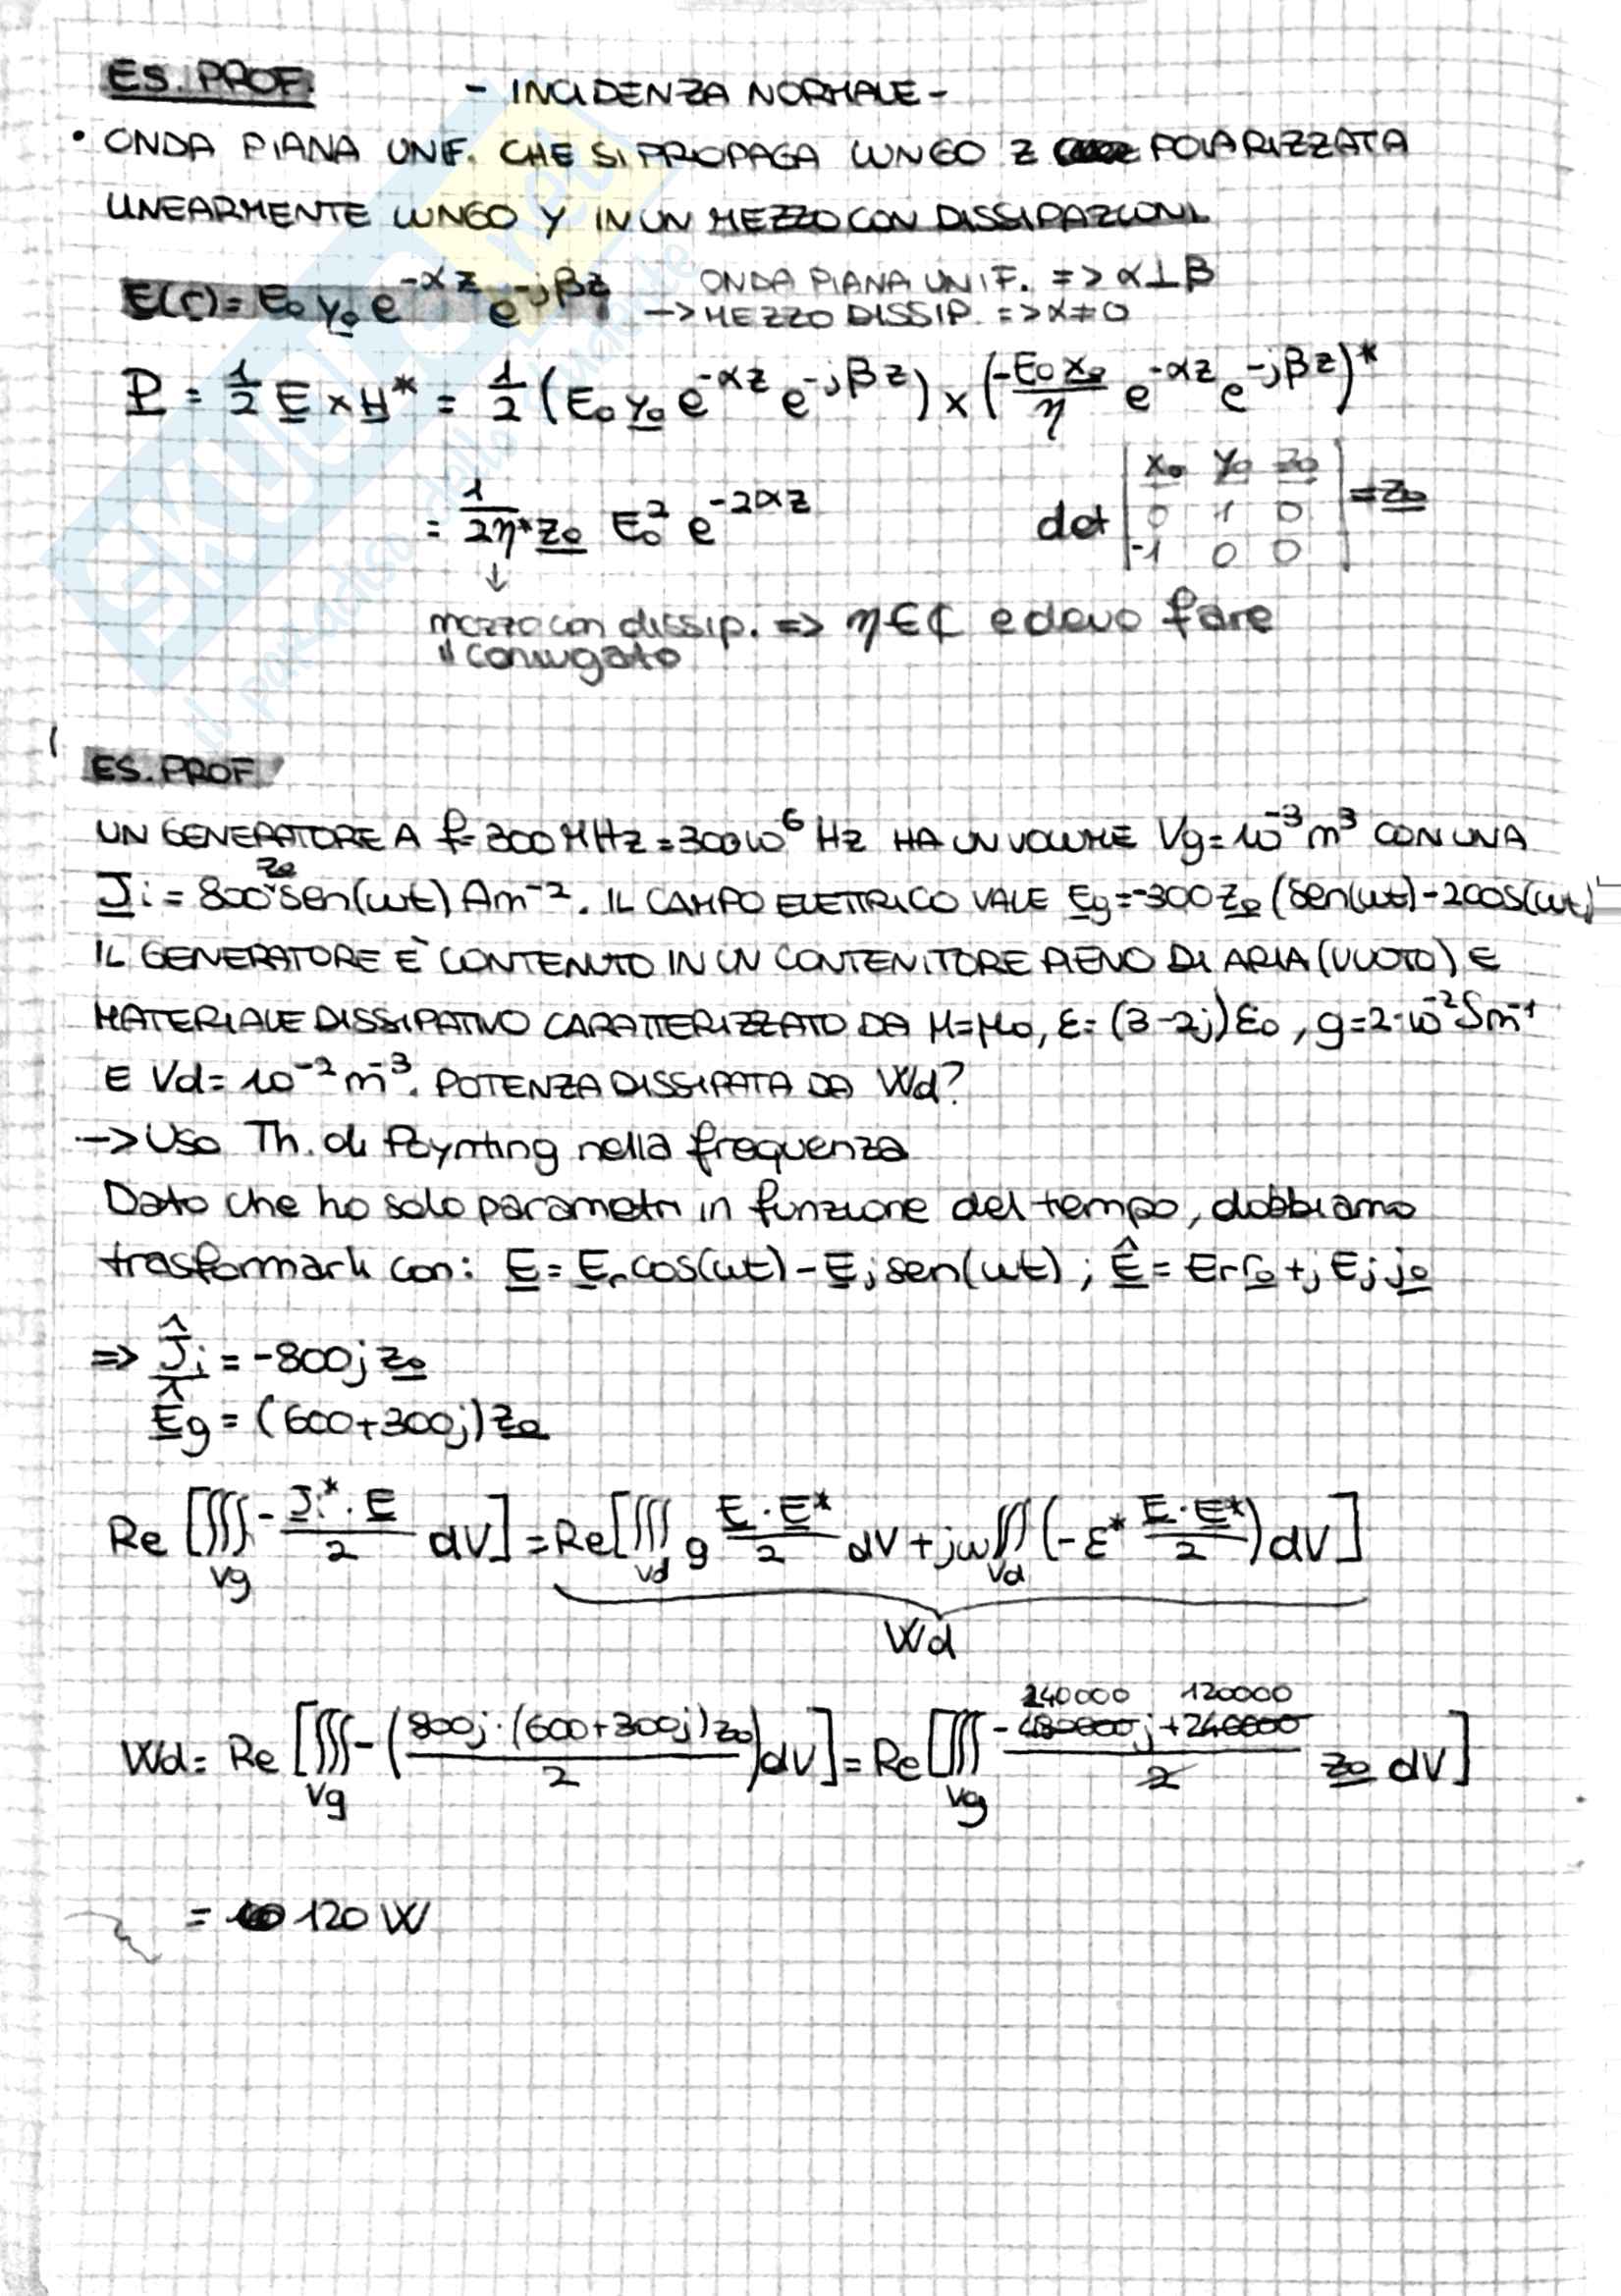 ES. PROF.
- INCIDENZA NORMALE -
• ONDA PIANA UNIF. CHE SI PROPAGA LUNGO Z POLARIZZATA
LINEARMENTE LUNGO Y IN UN MEZZO CON DISSIPAZIONI
E(r) = E₀ y₀ e^{-αz} e^{-jβz} ONDA PIANA UNIF. => α⊥β
-> MEZZO DISSIP. => α≠0
P = 1/2 E × H* = 1/2 (E₀ y₀ e^{-αz} e^{-jβz}) × (-E₀x₀/η e^{-αz} e^{-jβz})*
= 1/2η* z₀ E₀² e^{-2αz}
det | x₀ y₀ z₀ | = z₀
0 1 0
-1 0 0
↓
mezzo con dissip. => η∈ℂ e devo fare
il coniugato
ES. PROF
UN GENERATORE A f=300 MHz = 300·10⁶ Hz HA UN VOLUME Vg = 10⁻³ m³ CON UNA
Ji = 800 z₀ sen(ωt) Am⁻². IL CAMPO ELETTRICO VALE Eg = -300 z₀ (sen(ωt) - 2cos(ωt)
IL GENERATORE È CONTENUTO IN UN CONTENITORE PIENO DI ARIA (VUOTO) E
MATERIALE DISSIPATIVO CARATTERIZZATO DA μ=μ₀, ε=(3-2j)ε₀, g=2·10⁻² Sm⁻¹
E Vd = 10⁻² m⁻³. POTENZA DISSIPATA DA Wd?
-> Uso Th. di Poynting nella frequenza
Dato che ho solo parametri in funzione del tempo, dobbiamo
trasformarli con: E = Er cos(ωt) - Ej sen(ωt) ; Ê = Er r₀ + j Ej j₀
=> Ĵi = -800j z₀
Êg = (600+300j) z₀
Re [∭_Vg - Ji*·E/2 dV] = Re [∭_Vd g E·E*/2 dV + jω ∭_Vd (-ε* E·E*/2) dV]
Wd
240000 120000
Wd = Re [∭_Vg - (800j·(600+300j) z₀/2) dV] = Re [∭_Vg -480000j + 240000/2 z₀ dV]
= 120 W
EKUMnet
il paradiso dello studente